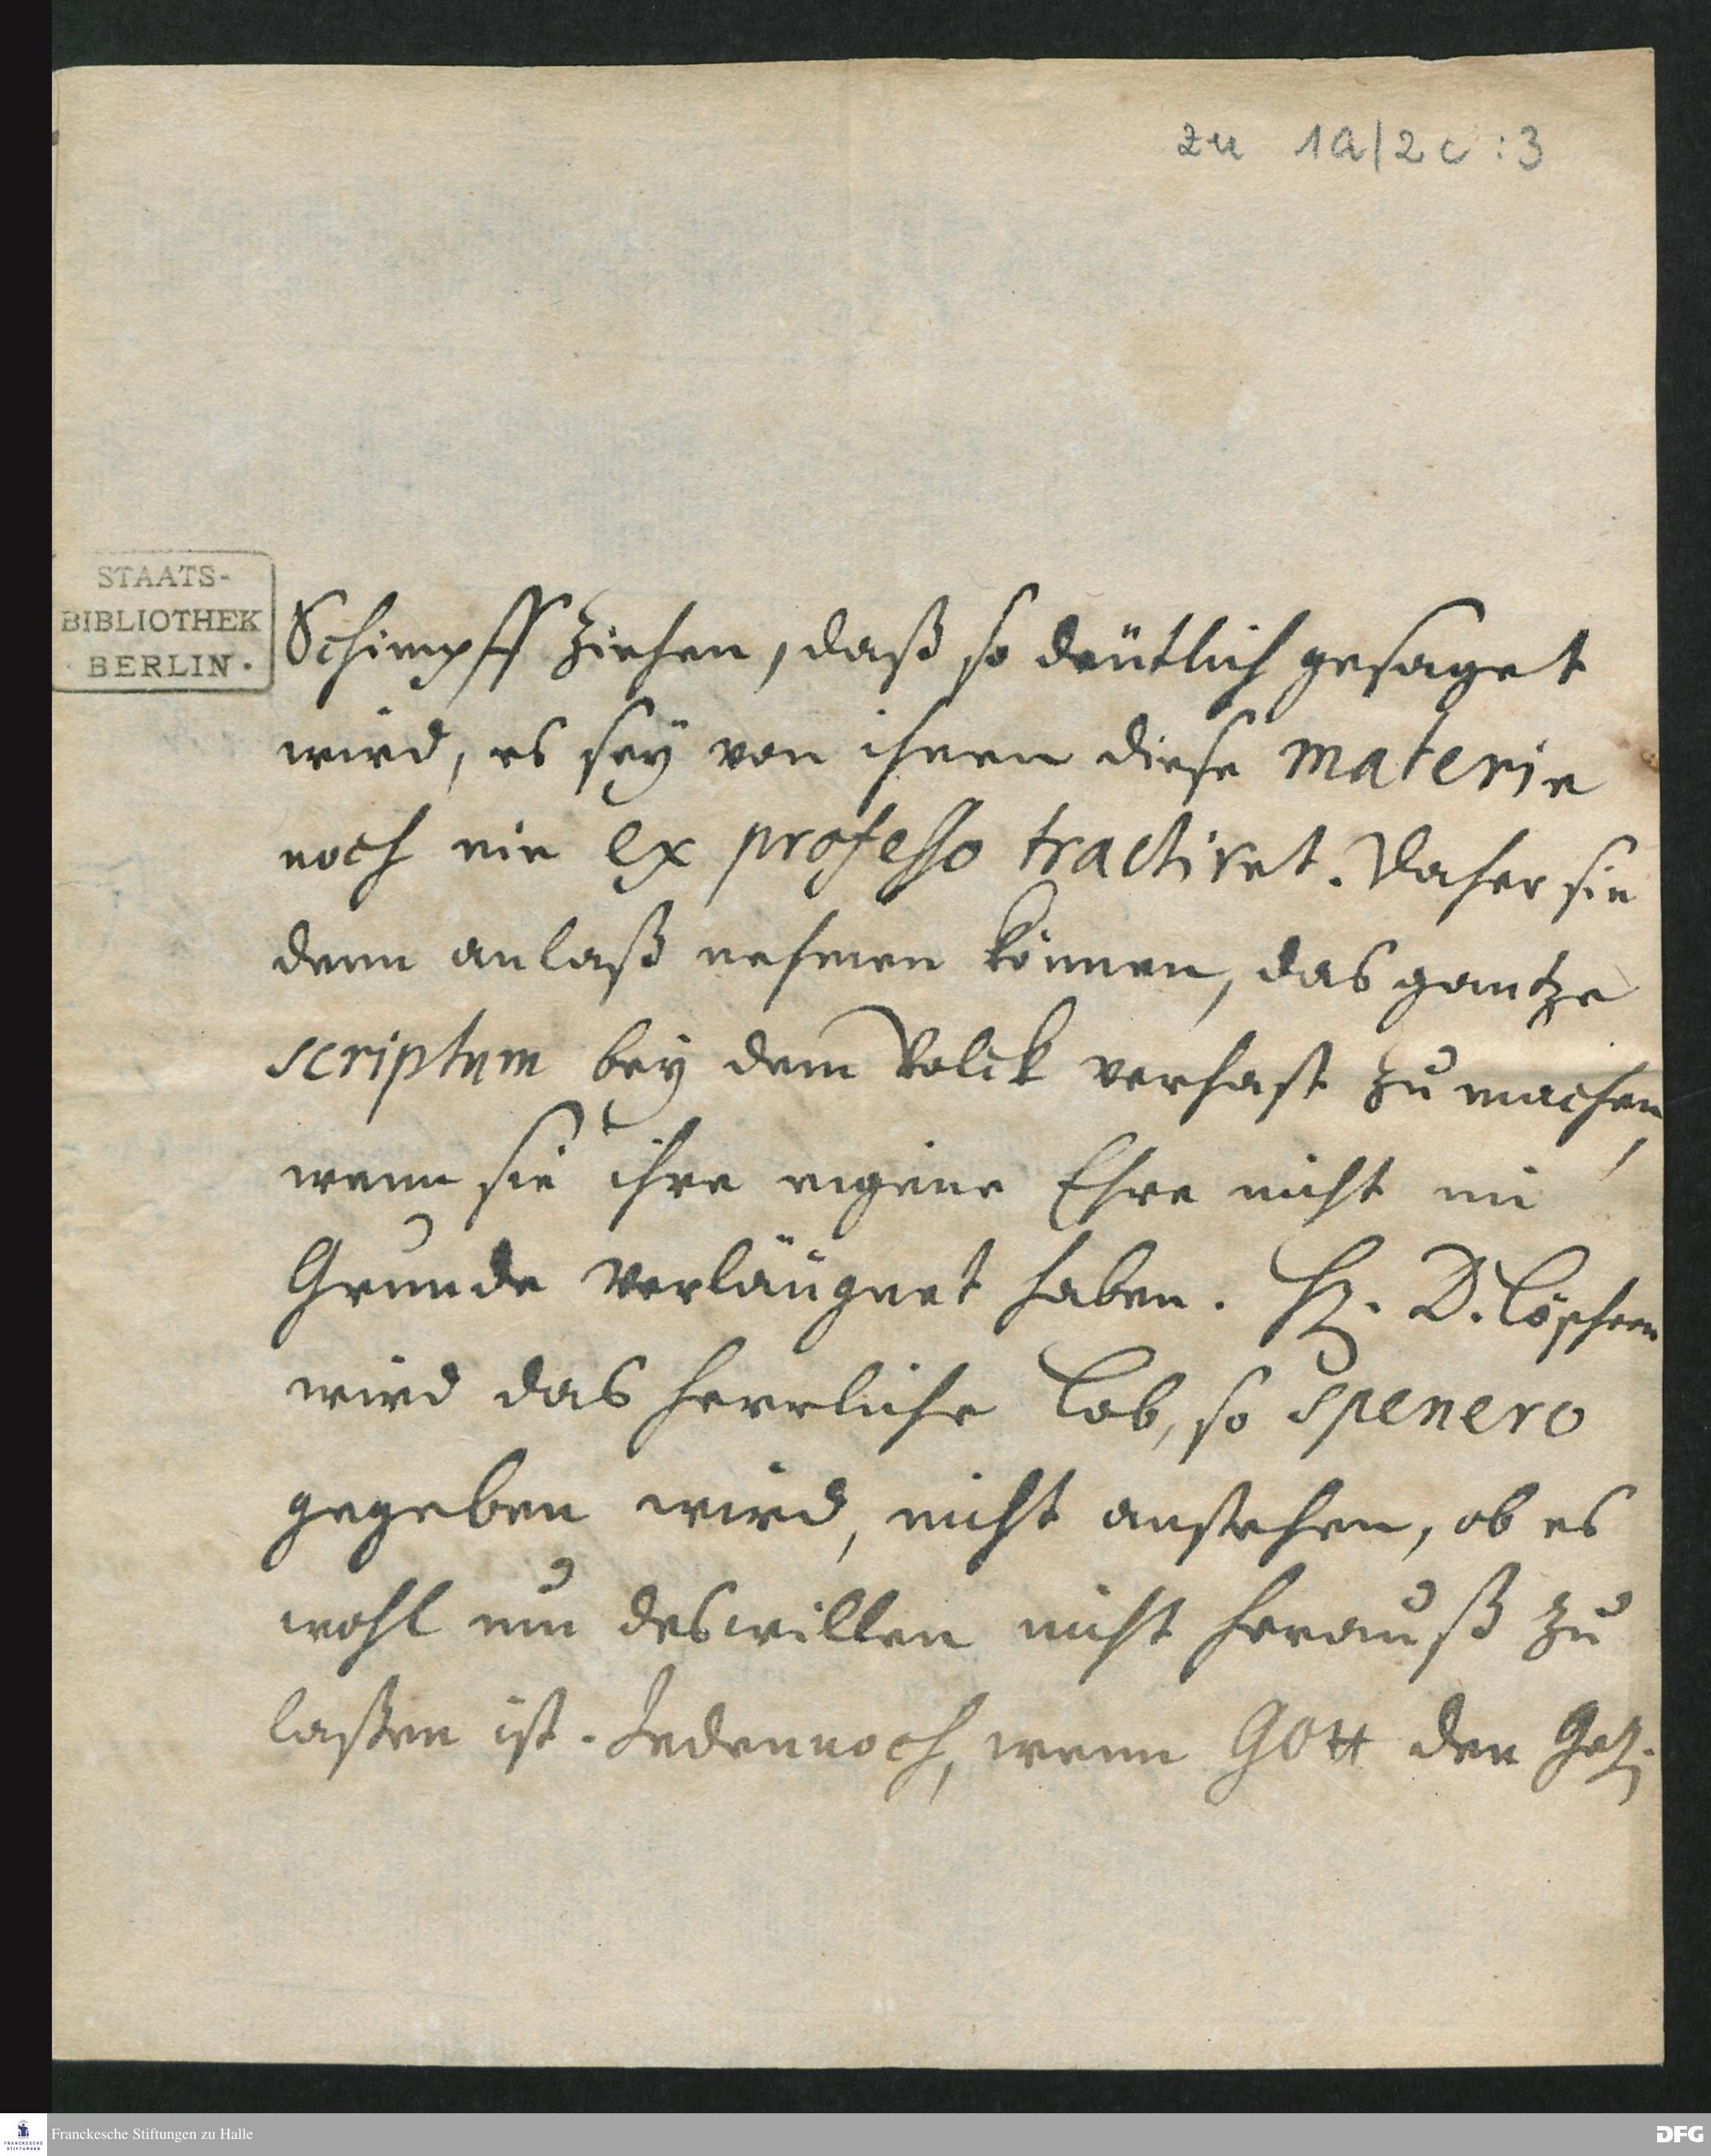 zu 1a/2c:3
STAATS-
BIBLIOTHEK
· BERLIN ·
Schimpff ziehen, daß so deütlich gesaget
wird, es seÿ von ihnen diese materie
noch nie ex professo tractiret. Daher sie
denn anlaß nehmen können, das gantze
scriptum beÿ dem Volck verhast zu machen,
wenn sie ihre eigene Ehre nicht im
Grunde verläugnet haben. Hr. D. Löschern
wird das herrliche Lob, so Spenero
gegeben wird, nicht anstehen, ob es
wohl um deswillen nicht herauß zu
laßen ist. Jedennoch, wenn GOtt den
Franckesche Stiftungen zu Halle
DFG